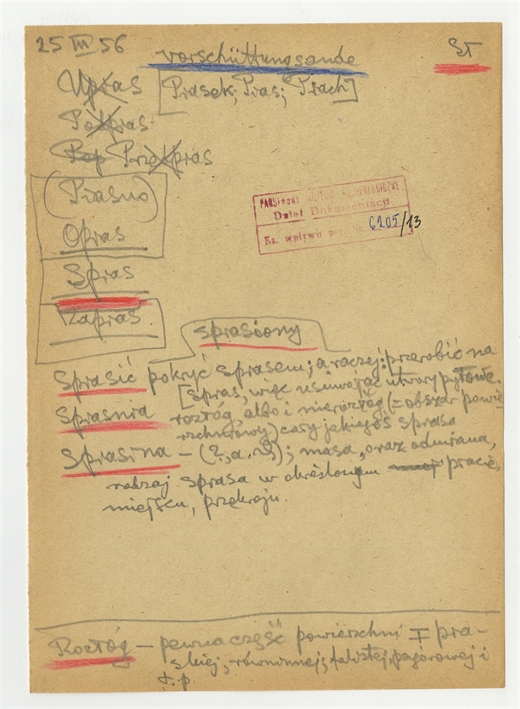 25 III 56
ST
Vorschüttungssande
Upras [Piasek; Pras; Prach]
Popras
Pop Przepras
(Prasno)
Opras
Spras
Zapras
sprasiony
Sprasić pokryć sprasem; a raczej: przerobić na
[spras, więc usuwając utwory pyłowe.
Sprasnia rozłóg, albo i nierozłóg (= obszar powie-
rzchniowy) cały jakiegoś sprasa
Sprasina – (?, a, n?); masa, oraz odmiana,
rodzaj sprasa w określonym pracie,
miejscu, przekroju.
PAŃSTWOWY
Dział Dokumentacji
Ks. wpływu 6205/13
Rozłóg – pewna część powierzchni I pra-
skiej, równinnej, falistej, pagórowej i
t.p.